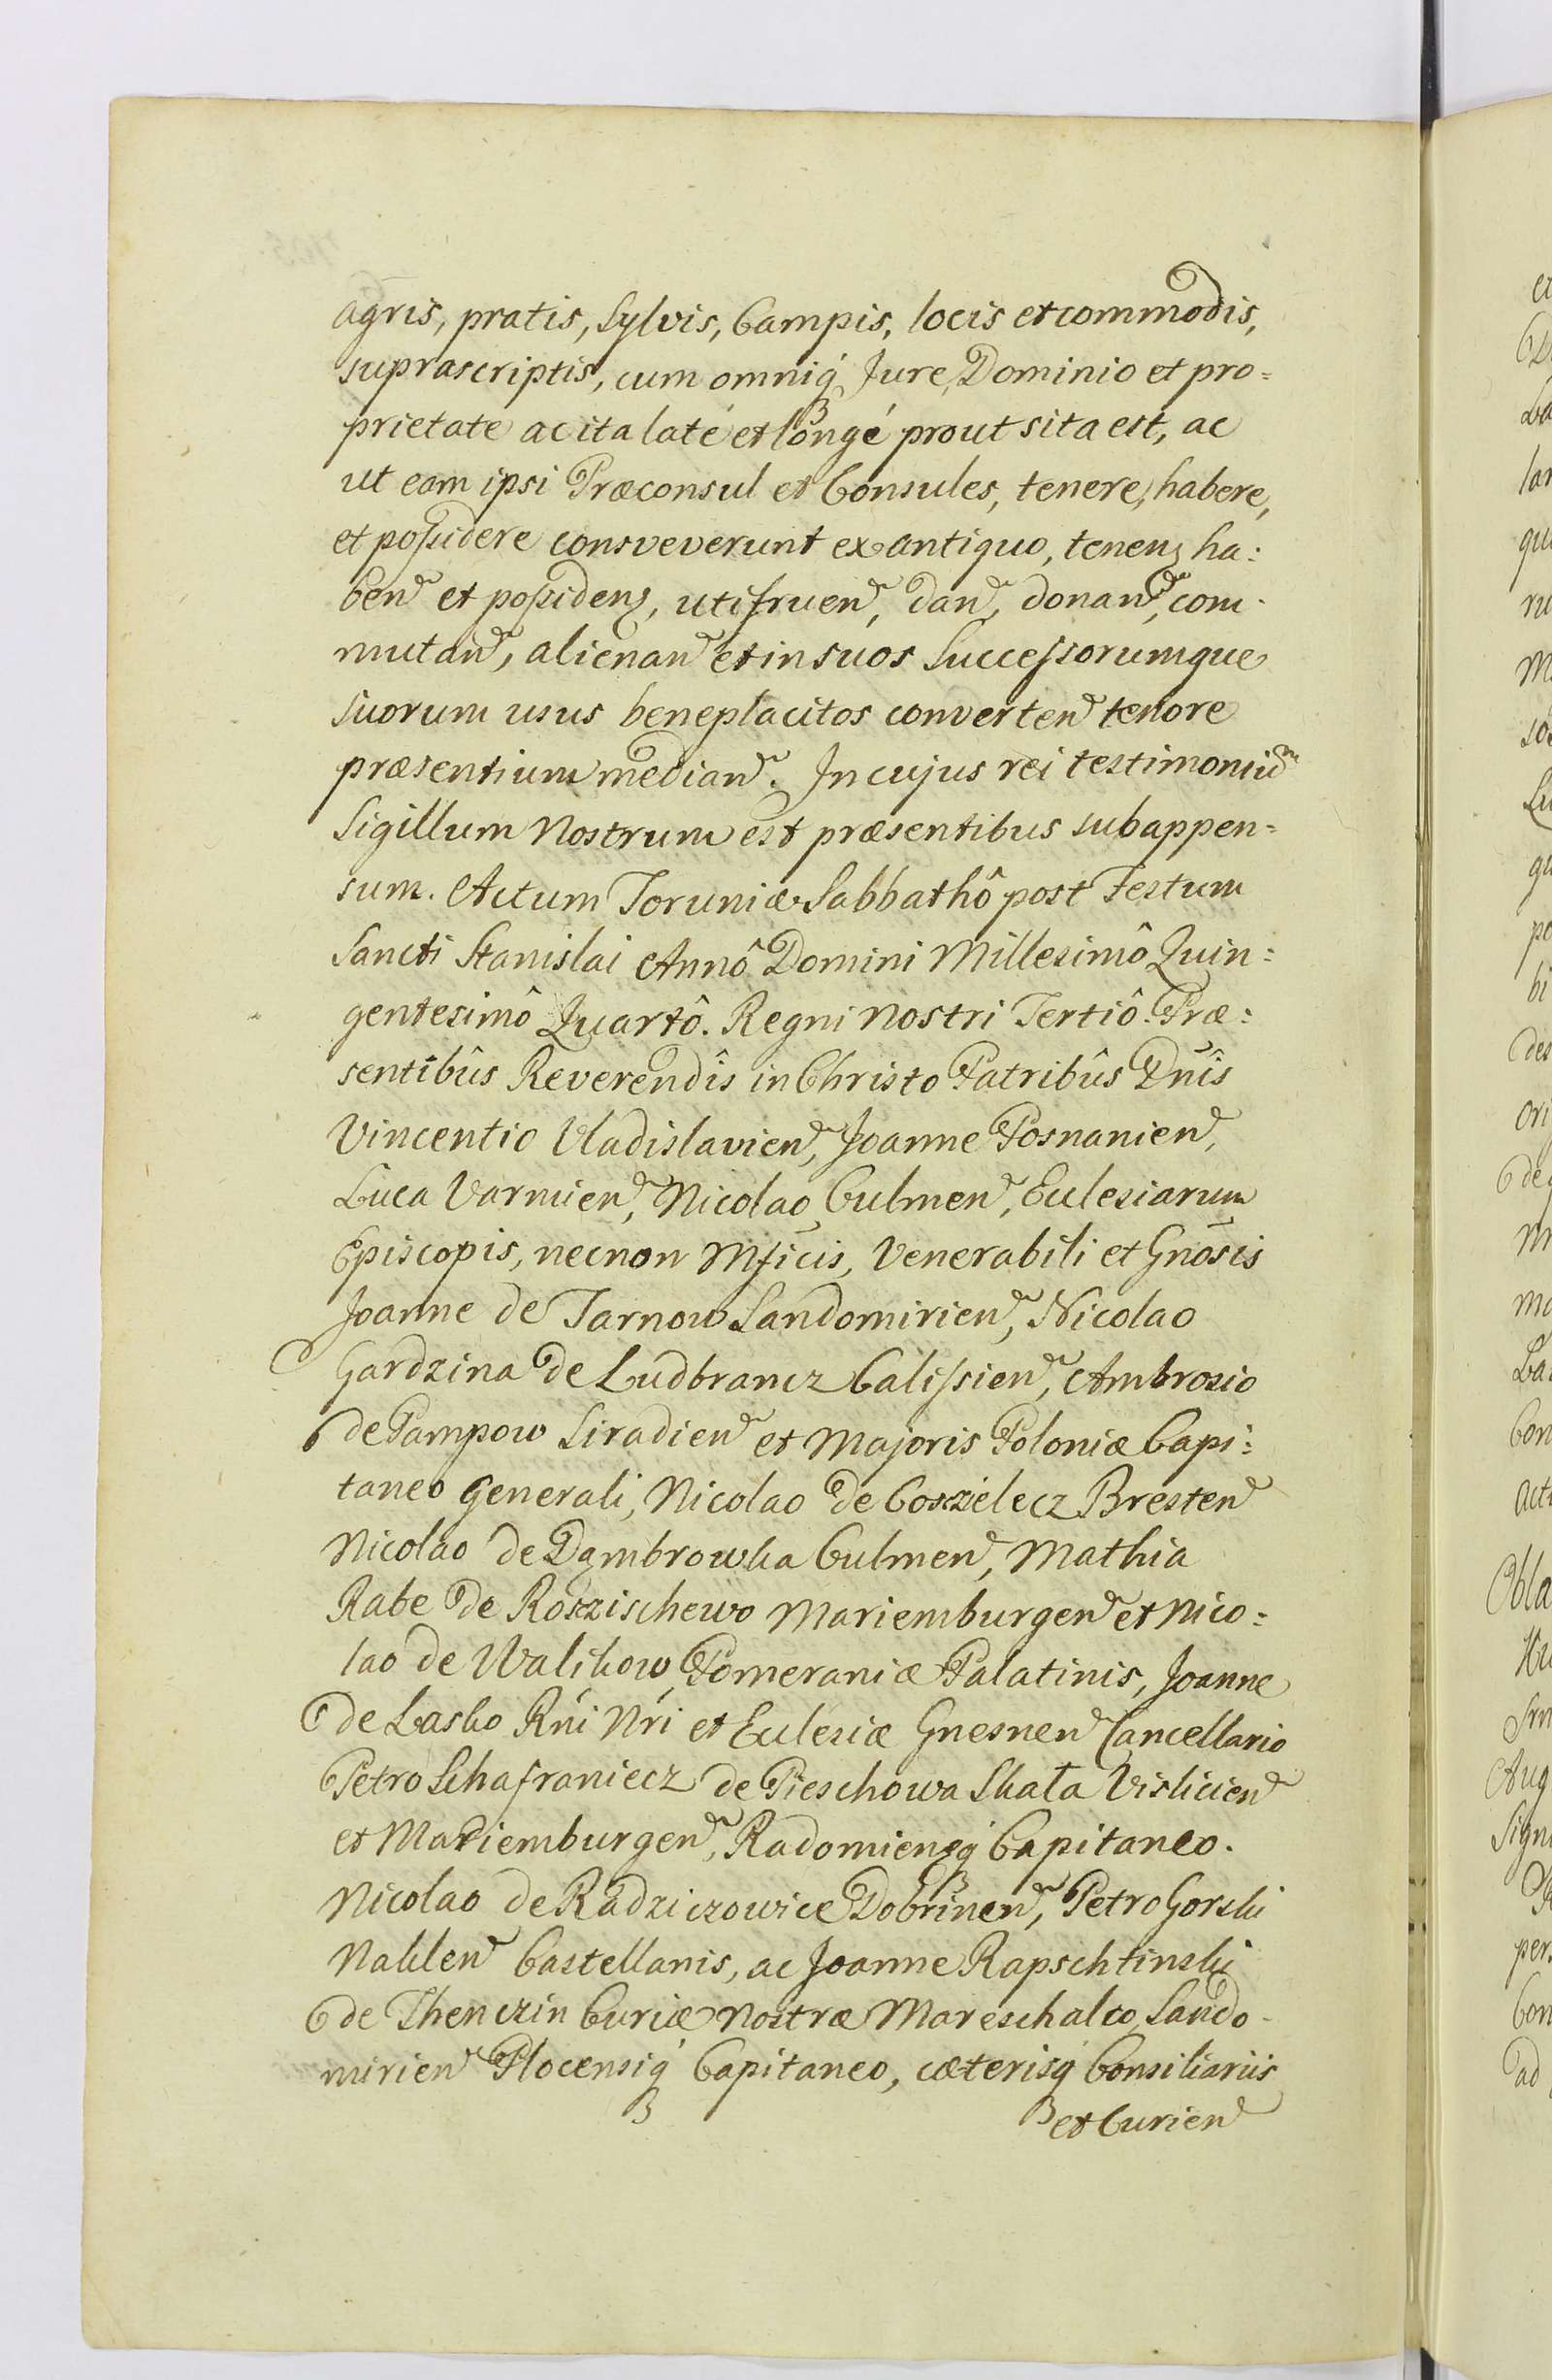 agris, pratis, Sylvis, Campis, locis et commodis,
suprascriptis, cum omniq́ Jure, Dominio et pro=
prietate ac ita laté et longé prout sita est, ac
ut eam ipsi Præconsul et Consules, tenere, habere,
et poſsidere consveverunt ex antiquo, tenen, ha:
ben et poſsiden, utifruen, dan, donan, com-
mutan, alienan et in suos Succeſsorumque
Suorum usus beneplacitos converten tenore
præsentium median. In cujus rei testimoniū
Sigillum Nostrum est præsentibus subappen=
sum. Actum Toruniæ Sabbathô post Festum
Sancti Stanislai Annô Domini Millesimô Quin=
gentesimô Quartô. Regni Nostri Tertiô. Præ:
sentibûs Reverendîs in Christo Patribûs Dnîs
Vincentio Vladislavien, Joanne Posnanien,
Luca Varmien, Nicolao Culmen, Eclesiarum
Episcopis, necnon Mficis, Venerabili et Gnōsis
Joanne de Tarnow Sandomirien, Nicolao
Gardzina de Ludbrancz Caliſsien, Ambrosio
de Pampow Siradien et Majoris Poloniæ Capi:
taneo Generali, Nicolao de Cosczelecz Bresten
Nicolao de Dąmbrowka Culmen, Mathia
Rabe de Roszischewo Mariemburgen et Nico=
lao de Walikow Pomeraniæ Palatinis, Joanne
de Lasko Rńi Nŕi et Eclesiæ Gnesnen Cancellario
Petro Schafraniecz de Pieschowa Skała Vislicien
et Mariemburgen, Radomiensq́ Capitaneo.
Nicolao de Radziczowice Dobrinen, Petro Gorski
Naklen Castellanis, ac Joanne Rapschtinski
de Thenczin Curiæ Nostræ Mareschalco, Sando-
mirien Plocensiq́ Capitaneo, cæterisq́ Consiliariis
et Curien